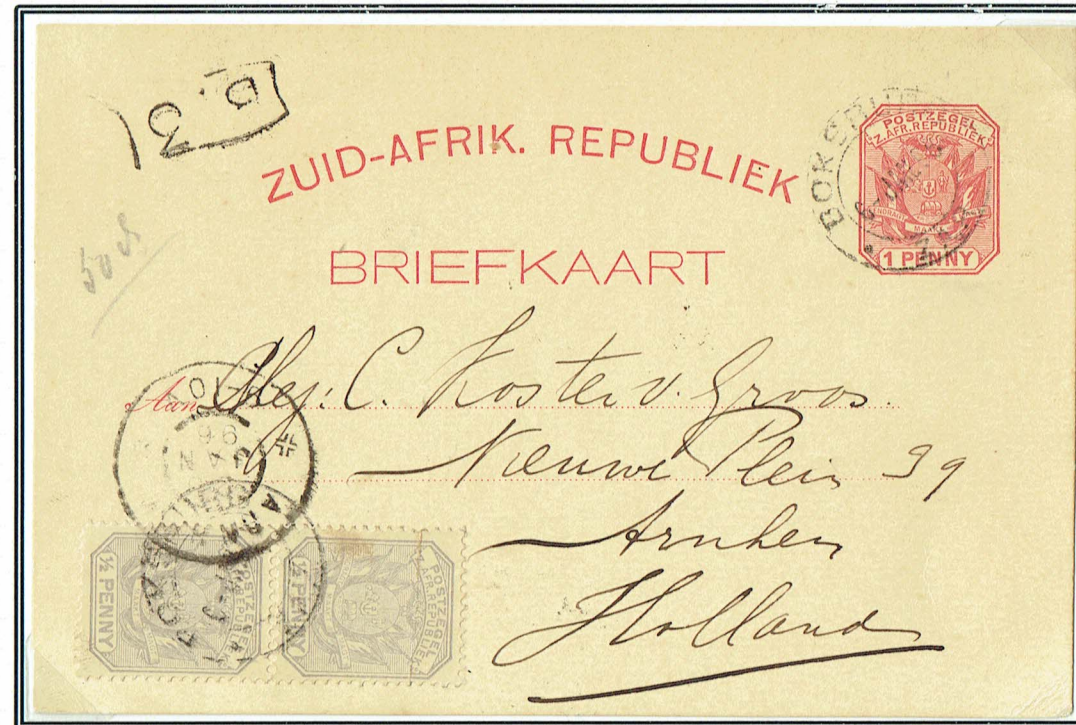 B. 3
ZUID-AFRIK. REPUBLIEK
BRIEFKAART
POSTZEGEL
Z.AFR.REPUBLIEK
MAAKT
1 PENNY
BOKSBURG
Aan Mej: C. Koster v. Groos.
Nieuwe Plein 39
Arnhem
Holland
96
JAN
POSTZEGEL
Z.AFR.REPUBLIEK
½ PENNY
POSTZEGEL
Z.AFR.REPUBLIEK
½ PENNY